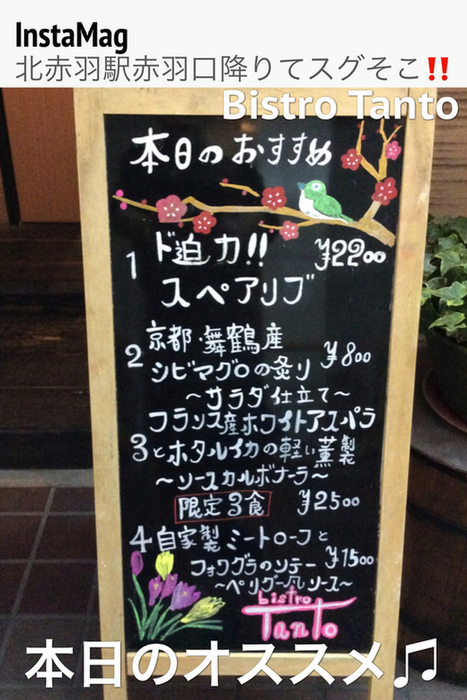 InstaMag
北赤羽駅赤羽口降りてスグそこ‼️
Bistro Tanto
本日のおすすめ
1 ド迫力!! ¥2200
スペアリブ
2 京都・舞鶴産
シビマグロの炙り ¥800
～サラダ仕立て～
フランス産ホワイトアスパラ
3 とホタルイカの軽い薫製
～ソースカルボナーラ～
限定3食 ¥2500
4 自家製ミートローフと
フォワグラのソテー ¥1500
～ペリグー風ソース～
bistro
Tanto
本日のオススメ♫